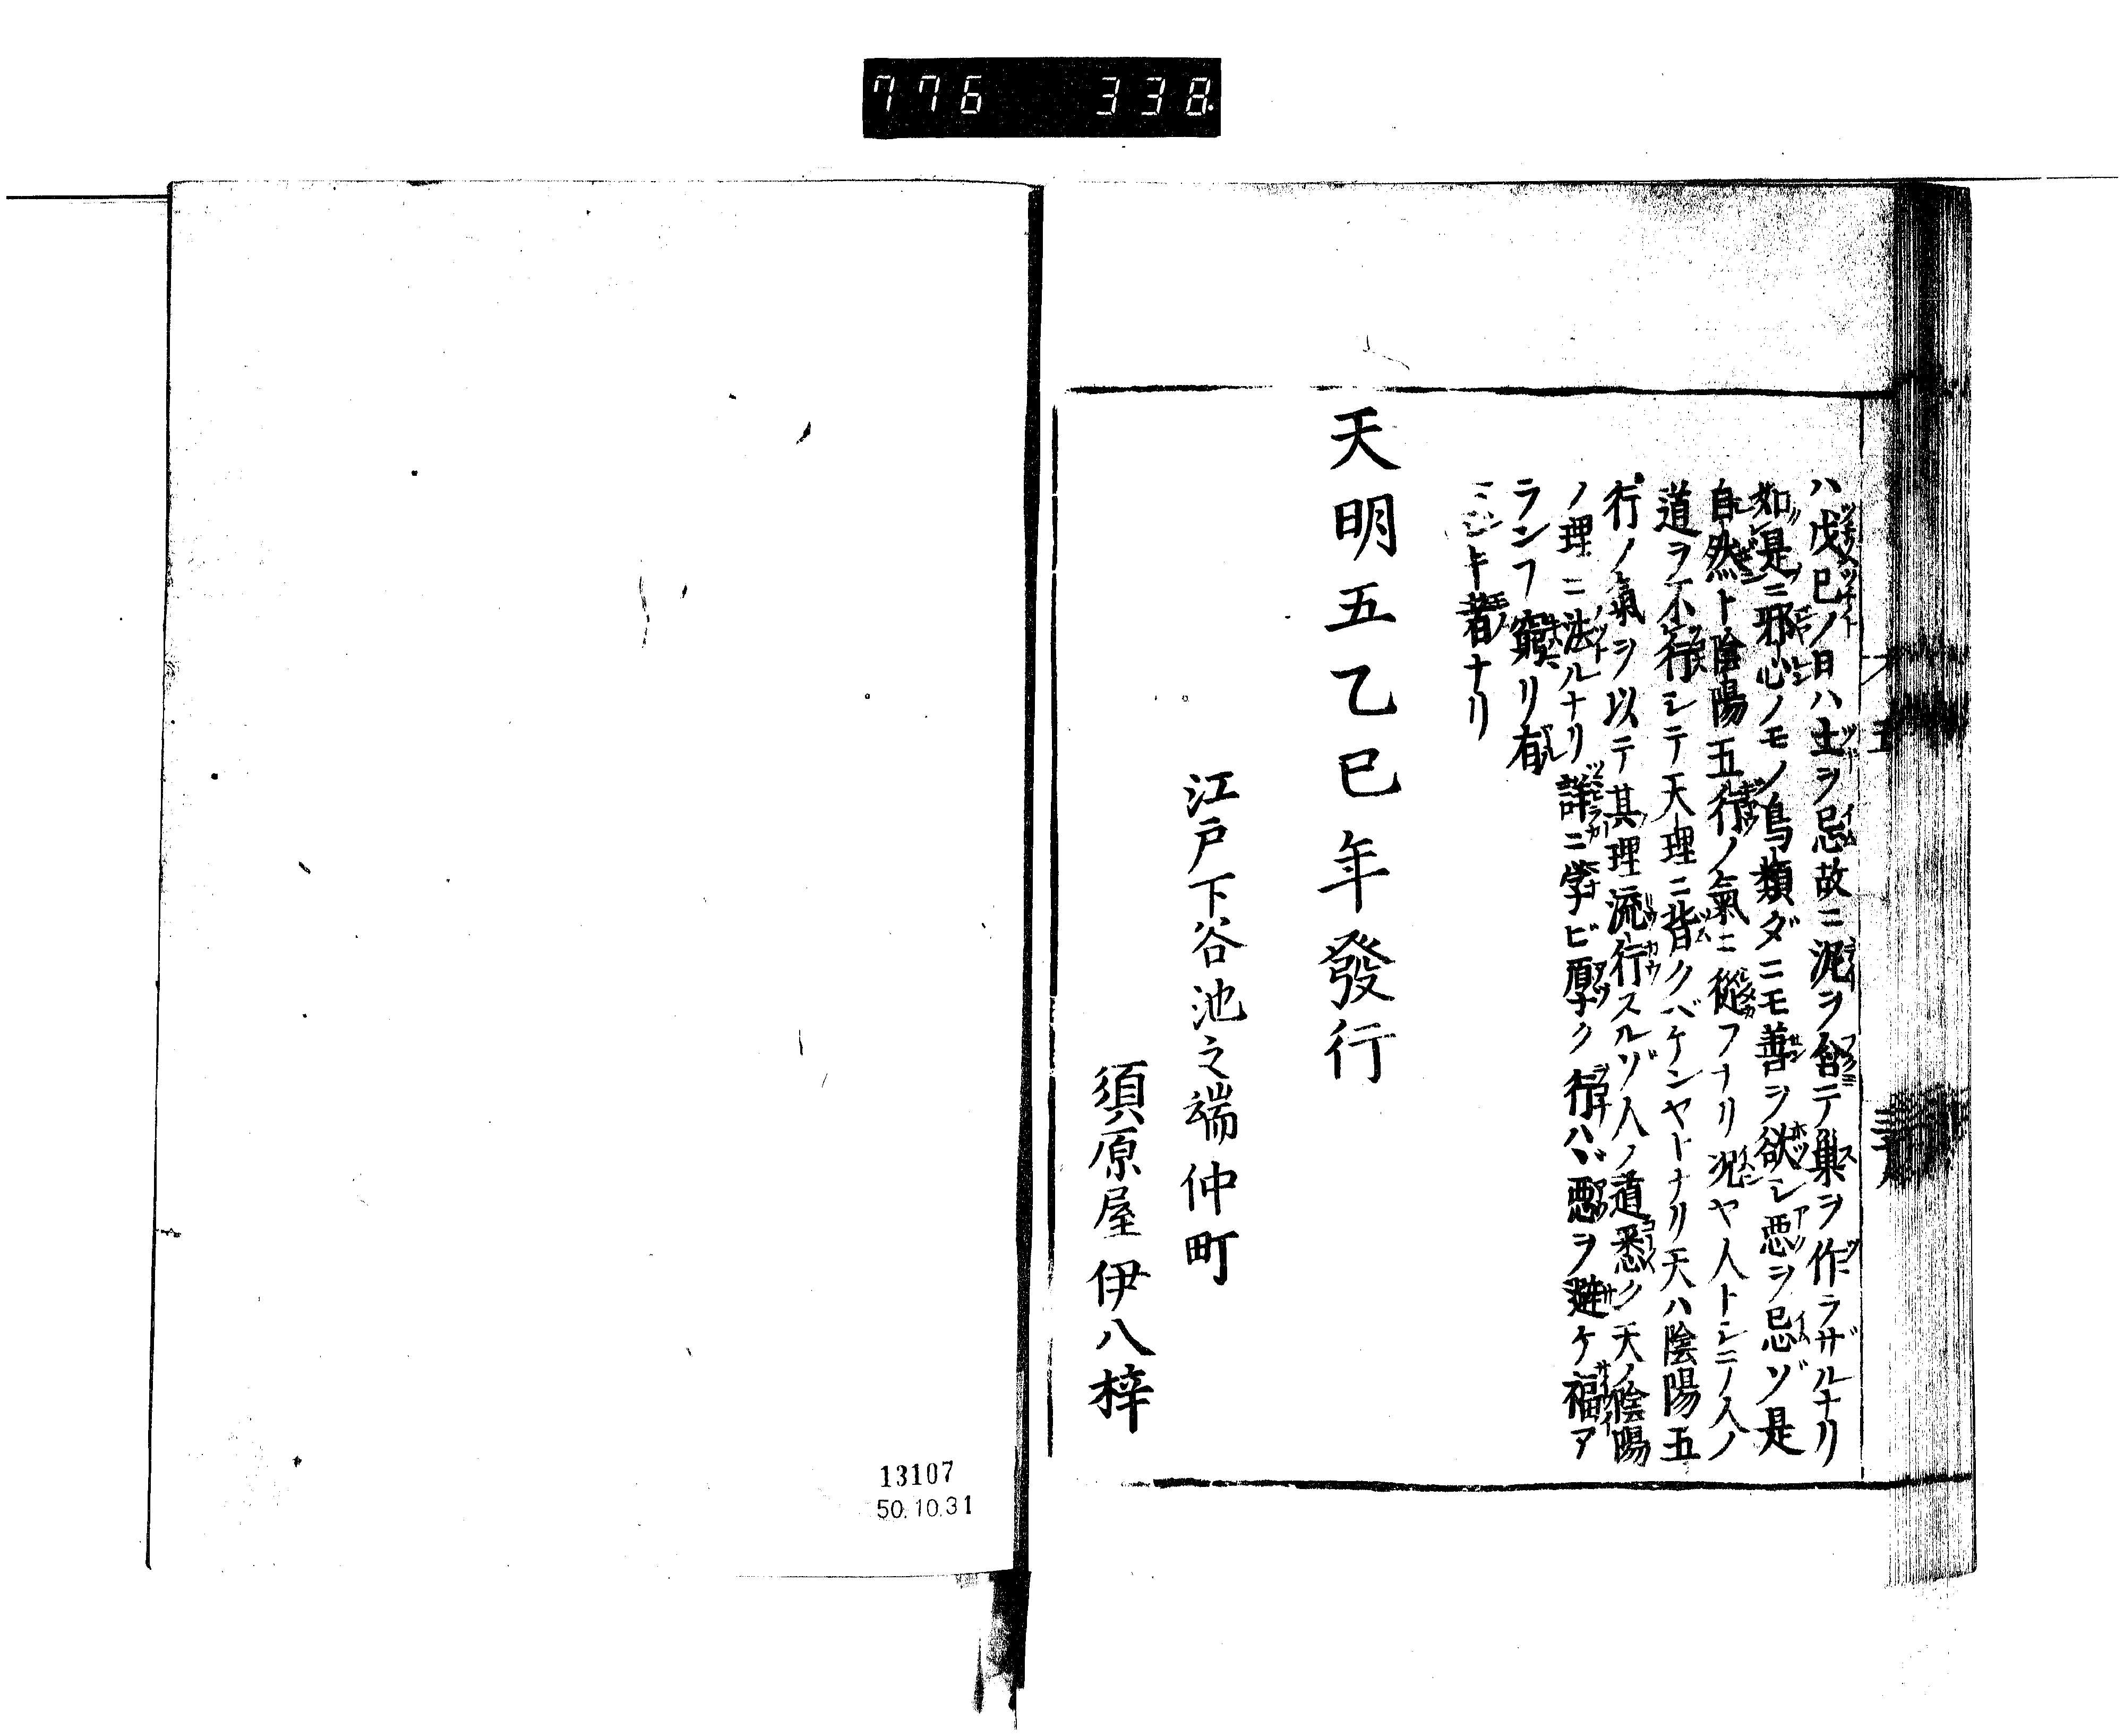 776 338
ハ戊己ノ日ハ土ヲ忌故ニ泥ヲ含テ巣ヲ作ラザルナリ
如是ニ邪心ノモノ鳥類ダニモ善ヲ欲シ悪ヲ忌ゾ是
自然ト陰陽五行ノ氣ニ從フナリ况ヤ人トシテノ人ノ
道ヲ不行シテ天理ニ背クベケンヤトナリ天ハ陰陽五
行ノ氣ヲ以テ其理流行スルゾ人ノ道悉ク天ノ陰陽
ノ理ニ法ルナリ詳ニ学ビ厚ク行ハヾ悪ヲ避ケ福ア
ランフ窮リ有
ト者ナリ
天明五乙巳年發行
江戸下谷池之端仲町
須原屋伊八梓
13107
50.10.31